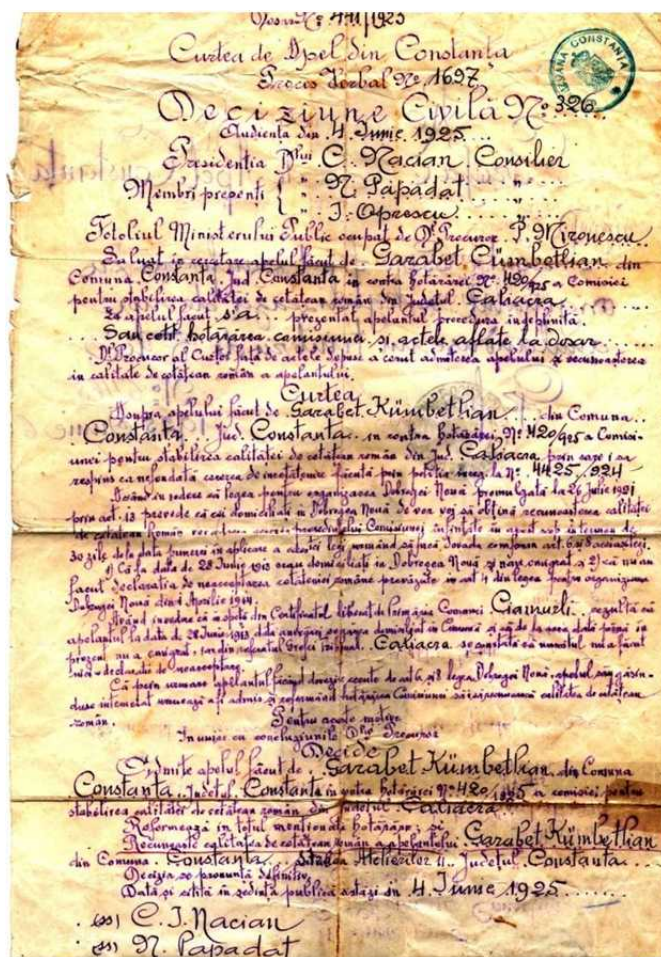 Dosar Nº 441/1925
Curtea de Apel din Constanța
Proces Verbal Nº 1697
CONSTANȚA
Deciziune Civilă Nº 326
Audiența din 4 Iunie 1925
Presidentia Dlui C. Nacian Consilier
Membri prezenti " N. Papadat "
" I. Oprescu "
Fotoliul Ministerului Public ocupat de Dl Procuror P. Mironescu
S'a luat in cercetare apelul făcut de Garabet Cümbethian din
Comuna Constanta Jud. Constanta in contra hotărârei Nº 420/925 a Comisiei
pentru stabilirea calitătei de cetătean român din Judetul Caliacra
La apelul făcut s'a prezentat apelantul procedura indeplinită.
S'au cetit hotărârea comisiunei si actele aflate la dosar
Dl Procuror al Curtei fată de actele depuse a cerut admiterea apelului si recunoasterea
in calitate de cetătean român a apelantului.
Curtea
Asupra apelului făcut de Garabet Kümbethian din Comuna
Constanta Jud. Constanta in contra hotărârei Nº 420/925 a Comisi-
unei pentru stabilirea calitătei de cetătean român din Jud. Caliacra prin care i sa
respins ca nefondată cererea de inregistrată la Nº 4425/924
Având in vedere că legea pentru organizarea Dobrogei Nouă promulgată la 26 Iulie 1921
prin art. 13 prevede că cei domiciliati in Dobrogea Nouă de vor voi să obtină recunoasterea calitătei
de cetătean Român vor adresa Comisiunei in termen de
30 zile dela data punerei in aplicare a acestei legi urmând să facă dovada conform art. 6
1) Că la data de 28 Iunie 1913 erau domiciliati in Dobrogea Nouă si n'au emigrat a 2) că nu au
făcut declaratia de neacceptarea cetăteniei române prevăzute in art 4 din legea pentru organizarea
Dobrogei Nouă din 1 Aprilie 1914
Având in vedere că in spetă din Certificatul liberat de Primăria Comunei Ciamurli rezultă că
apelantul la data de 28 Iunie 1913 data era domiciliat in Comună si că de la acea dată până in
prezent nu a emigrat iar din Caliacra se constată că numitul n'a făcut
nici o declaratie de neacceptare.
Că prin urmare apelantul făcând dovezile cerute de art 6 si 8 legea Dobrogei Nouă apelul său găsin-
duse intemeiat urmează a fi admis si reformând hotărârea Comisiunei să i se recunoască calitatea de cetătean
român.
Pentru aceste motive
In unire cu concluziunile Dlui Procuror
Decide
Admite apelul făcut de Garabet Kümbethian din Comuna
Constanta Judetul Constanta in potriva hotărârei Nº 420/925 a comisiei pentru
stabilirea calitătei de cetătean român din judetul Caliacra
Reformează in totul mentionata hotărâre si
Recunoaste calitatea de cetătean român apelantului Garabet Kümbethian
din Comuna Constanta strada Atelierilor 11 Judetul Constanta
Decizia se pronuntă definitiv
Dată si citită in sedintă publică astăzi in 4 Iunie 1925
(ss) C. I. Nacian
(ss) N. Papadat